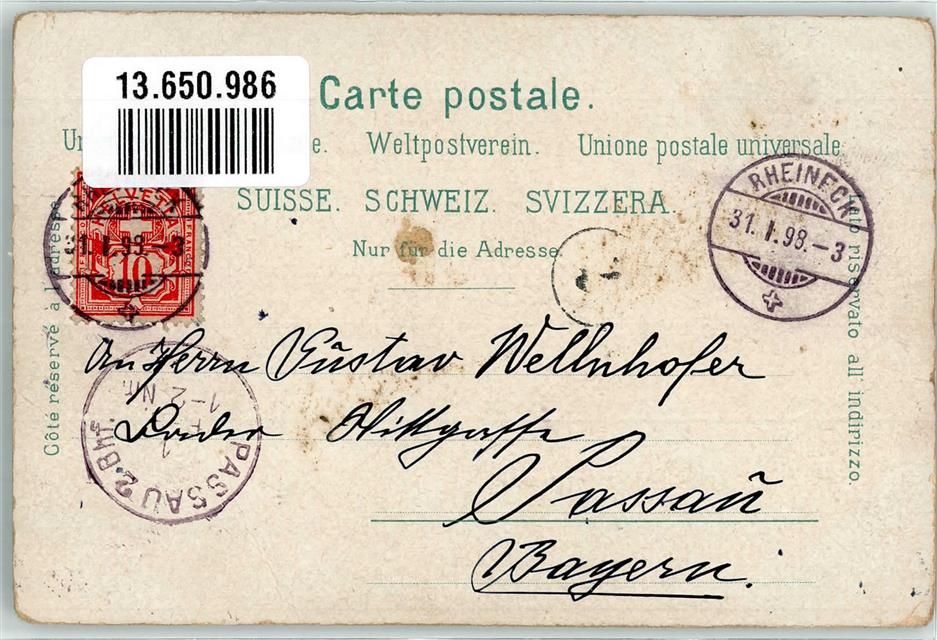 13.650.986
Carte postale.
Weltpostverein. Unione postale universale
SUISSE. SCHWEIZ. SVIZZERA.
Nur für die Adresse.
HELVETIA
FRANCO
10
31. I. 98.–3
RHEINECK
31. I. 98.–3
Côté réservé à l'adresse
riservato all' indirizzo.
An Herrn Gustav Wellnhofer
Passau
Bayern.
PASSAU 2 Bhf.
1-2 Nm.